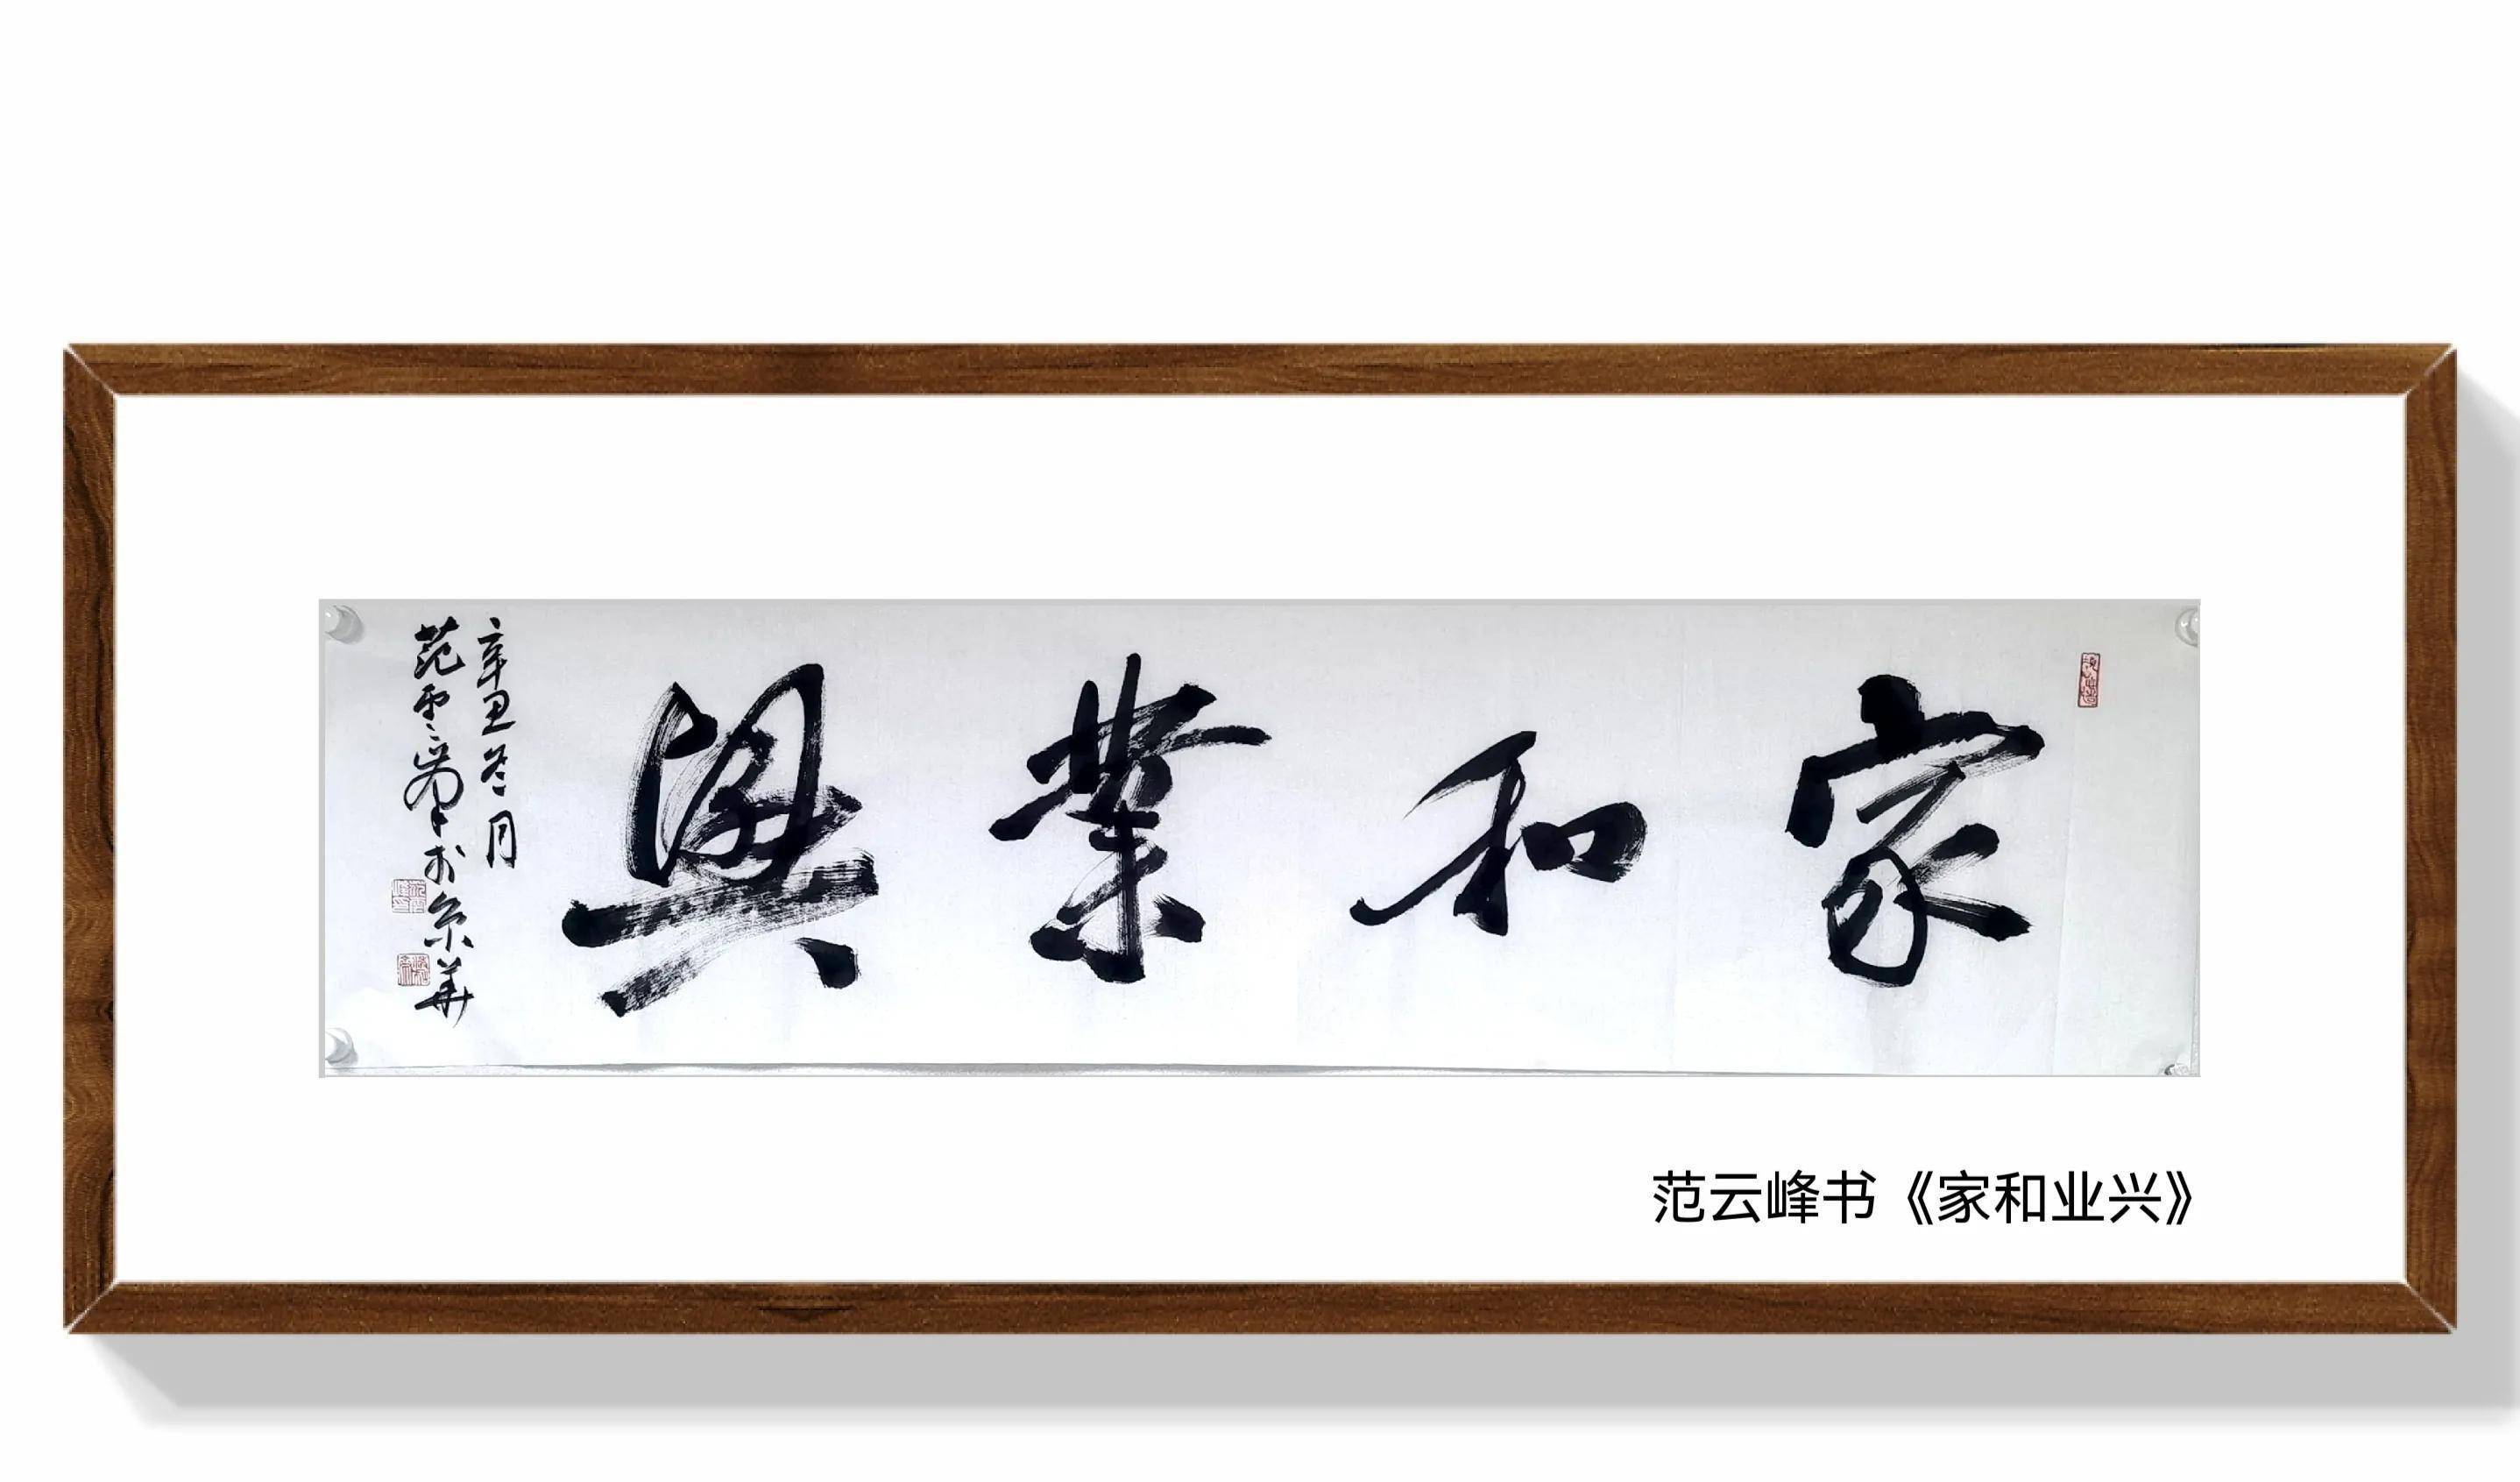 家和業興
辛丑冬月
范雲峯書於京華
范云峰书《家和业兴》